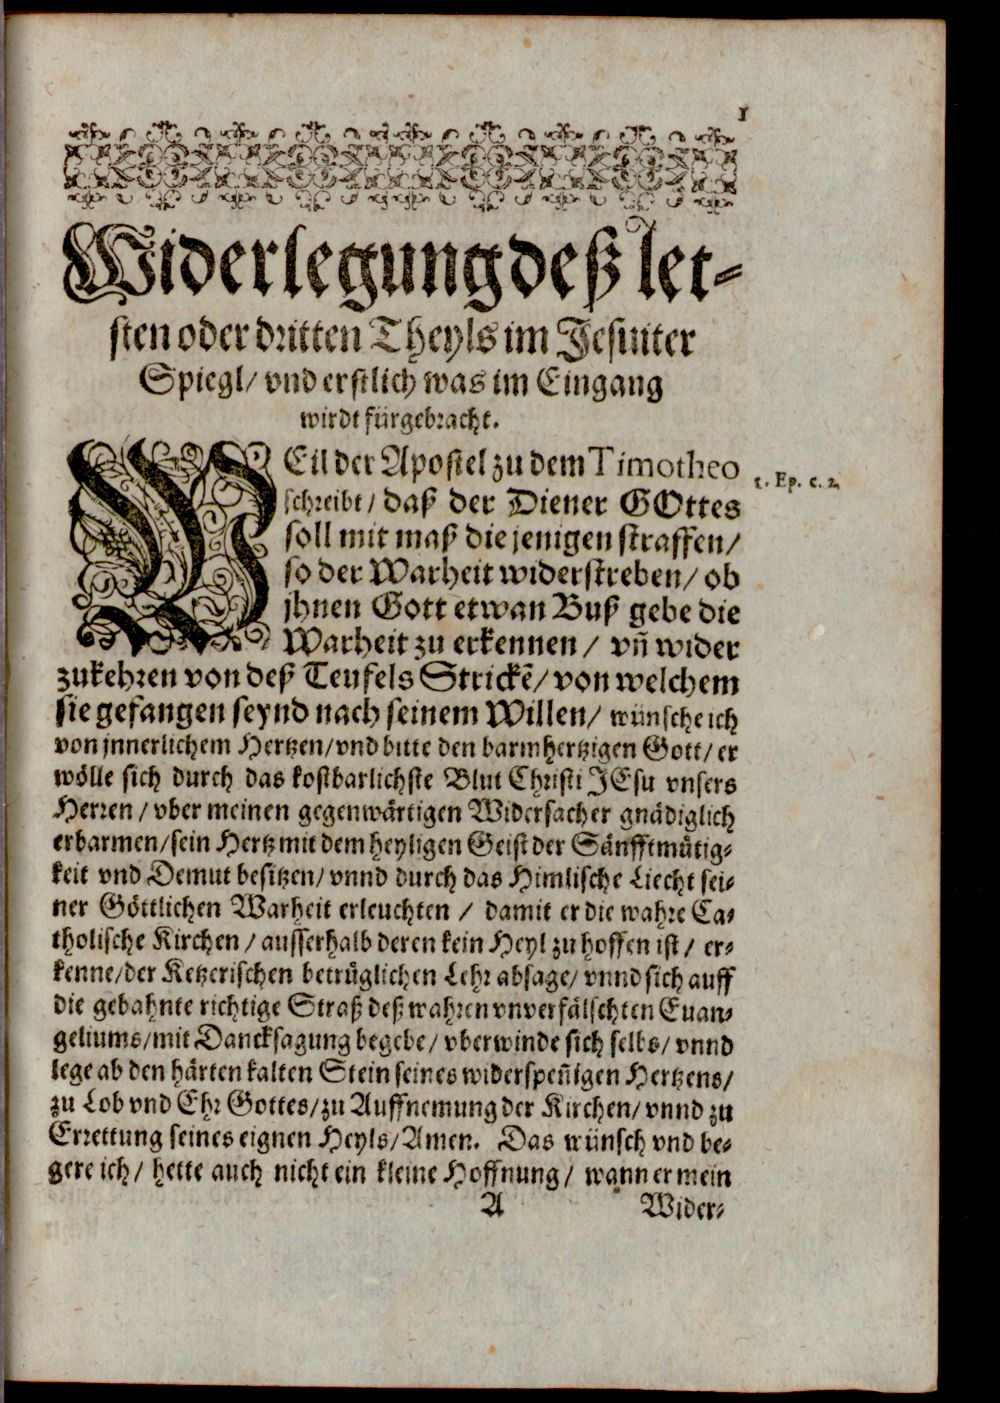 1
Widerlegung deß let-
sten oder dritten Theyls im Jesuiter
Spiegl/ vnd erstlich was im Eingang
wirdt fürgebracht.
WEil der Apostel zu dem Timotheo
1. Ep. c. 2.
schreibt/ daß der Diener GOttes
soll mit maß die jenigen straffen/
so der Warheit widerstreben/ ob
jhnen Gott etwan Buß gebe die
Warheit zu erkennen/ vñ wider
zukehren von deß Teufels Strickẽ/ von welchem
sie gefangen seynd nach seinem Willen/ wünsche ich
von jnnerlichem Hertzen/ vnd bitte den barmhertzigen Gott/ er
wölle sich durch das kostbarlichste Blut Christi JEsu vnsers
Herren/ vber meinen gegenwärtigen Widersacher gnädiglich
erbarmen/ sein Hertz mit dem heyligen Geist der Sänfftmütig-
keit vnd Demut besitzen/ vnnd durch das Himlische Liecht sei-
ner Göttlichen Warheit erleuchten/ damit er die wahre Ca-
tholische Kirchen/ ausserhalb deren kein Heyl zu hoffen ist/ er-
kenne/ der Ketzerischen betrüglichen Lehr absage/ vnnd sich auff
die gebahnte richtige Straß deß wahren vnverfälschten Euan-
geliums/ mit Dancksagung begebe/ vberwinde sich selbs/ vnnd
lege ab den härten kalten Stein seines widerspeñigen Hertzens/
zu Lob vnd Ehr Gottes/ zu Auffnemung der Kirchen/ vnnd zu
Errettung seines eignen Heyls/ Amen. Das wünsch vnd be-
gere ich/ hette auch nicht ein kleine Hoffnung/ wann er mein
A Wider-